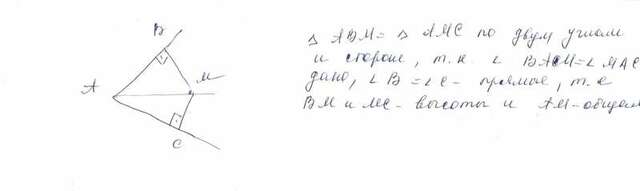 B
A
M
C
△ ABM = △ AMC по двум углам
и стороне, т.к. ∠ BAM = ∠ MAC
дано, ∠ B = ∠ C - прямые, т.к
BM и MC - высоты и AM - общая